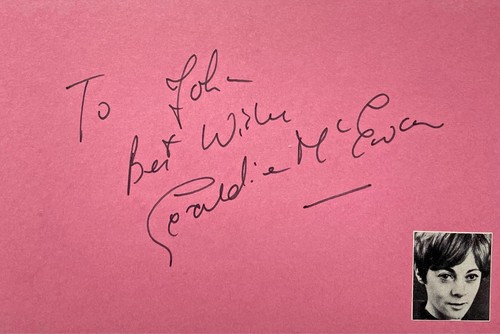 To John
Best Wishes
Geraldine McEwan